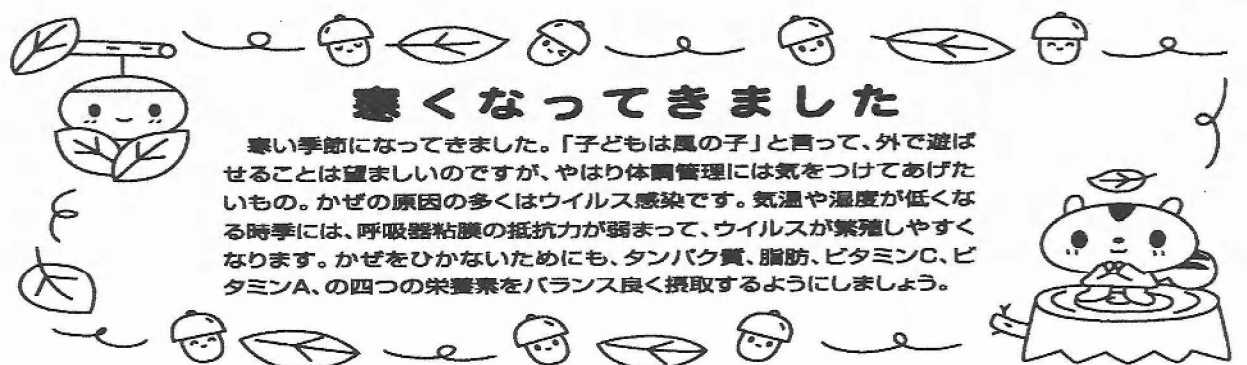 寒くなってきました
寒い季節になってきました。「子どもは風の子」と言って、外で遊ば
せることは望ましいのですが、やはり体調管理には気をつけてあげた
いもの。かぜの原因の多くはウイルス感染です。気温や湿度が低くな
る時季には、呼吸器粘膜の抵抗力が弱まって、ウイルスが繁殖しやすく
なります。かぜをひかないためにも、タンパク質、脂肪、ビタミンC、ビ
タミンA、の四つの栄養素をバランス良く摂取するようにしましょう。